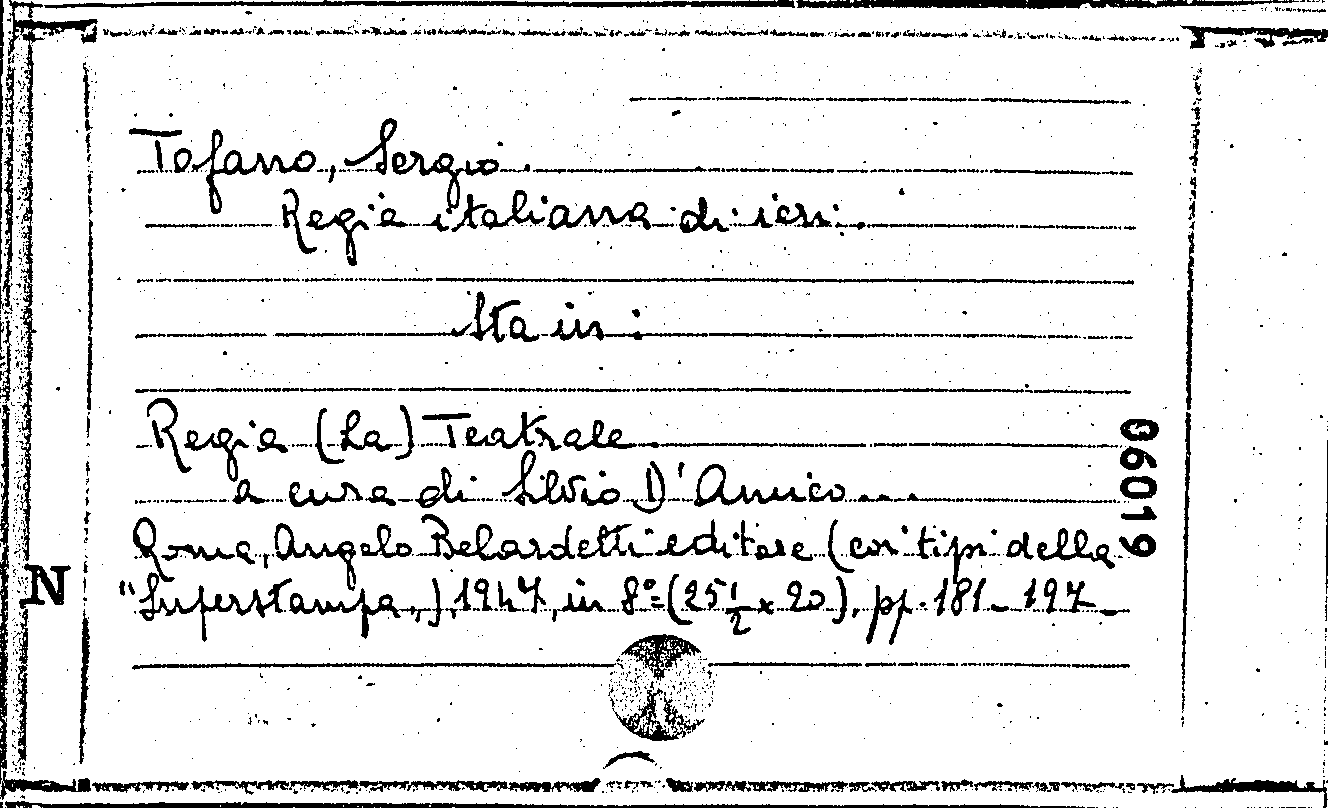 Tofano, Sergio.
Regia italiana di ieri.
Sta in:
Regia (La) Teatrale.
a cura di Silvio D'Amico...
Roma, Angelo Belardetti editore (coi tipi della
"Superstampa„), 1947, in 8°=(25 1/2 x 20), pp. 181-197-
N
06019